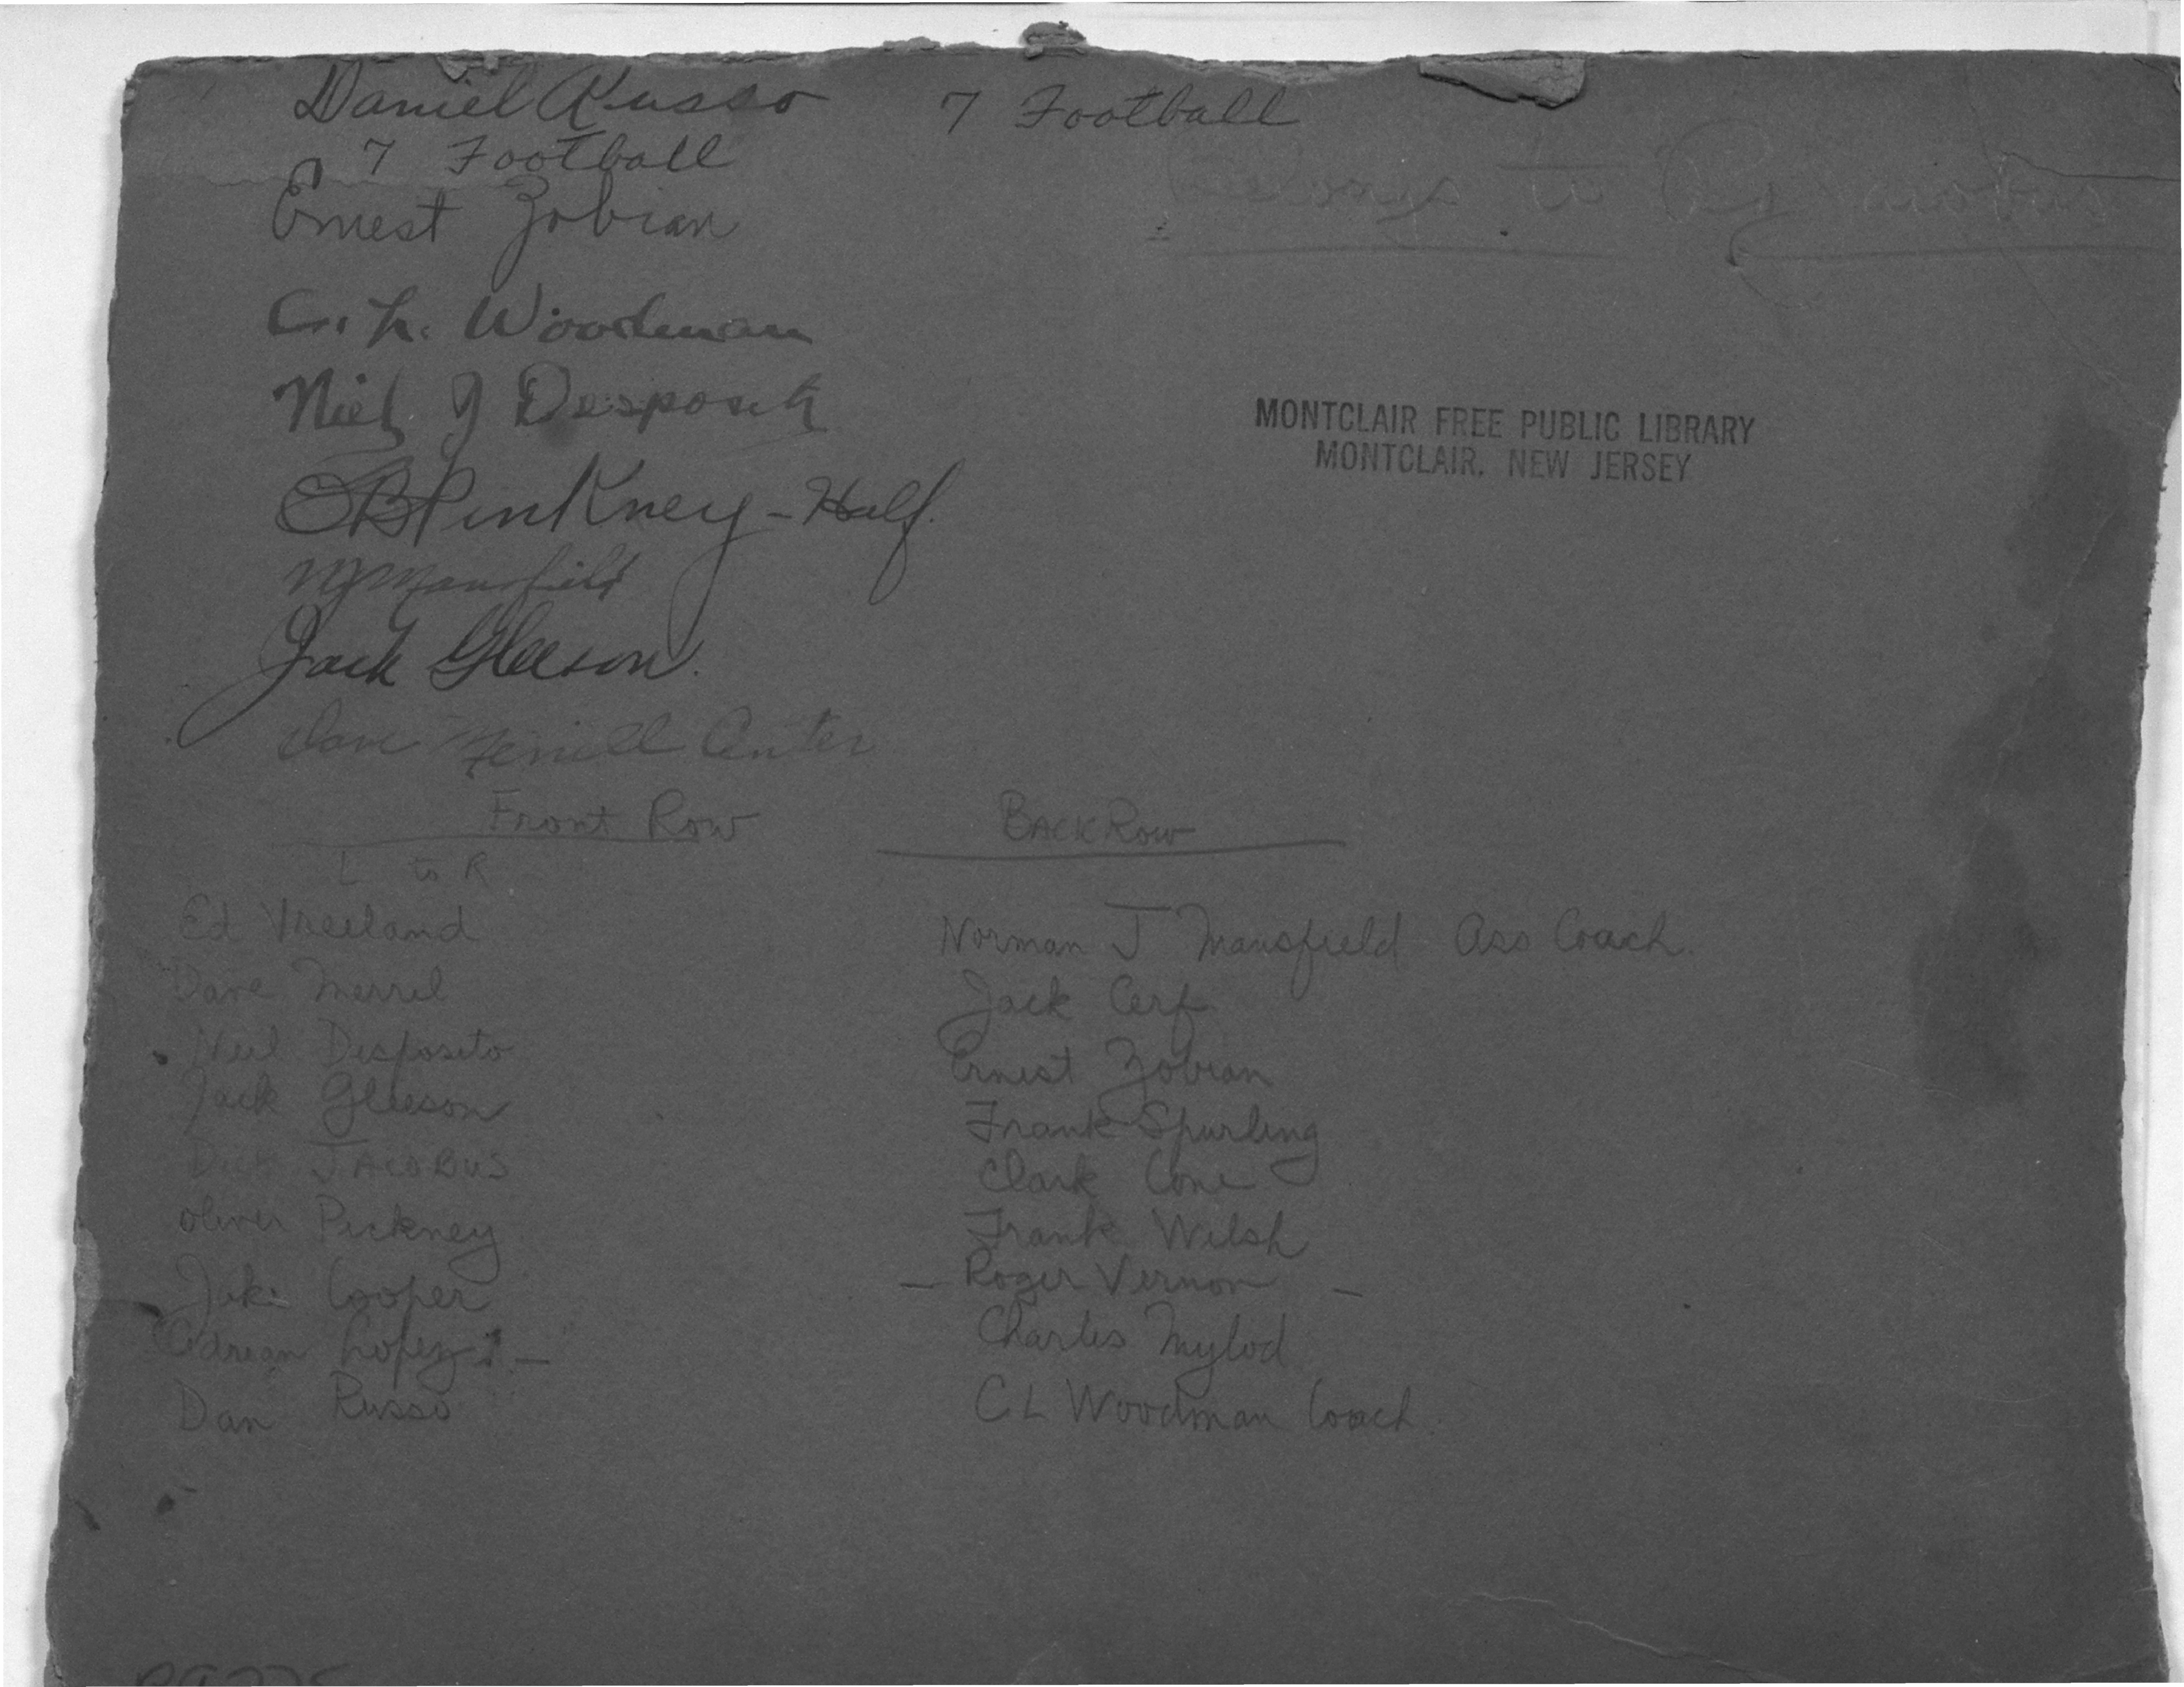 Daniel Russo 7 Football
7 Football
Ernest Zobian
Belongs to Jacobus
C. L. Woodman
Niel J Desposito
OB Pinkney - Half.
NJ Mansfield
Jack Gleeson.
Dave Center
MONTCLAIR FREE PUBLIC LIBRARY
MONTCLAIR, NEW JERSEY
Front Row
L to R
Ed Vreeland
Dave Merrel
Neil Desposito
Jack Gleeson
Dick JACOBUS
Oliver Pickney
Jake Cooper
Adrian Lopez -
Dan Russo
BACK Row
Norman J Mansfield Ass Coach.
Jack Cerf
Ernest Zobian
Frank Spurling
Clark Cone
Frank Welsh
- Roger Vernon -
Charles Mylod
C L Woodman Coach.